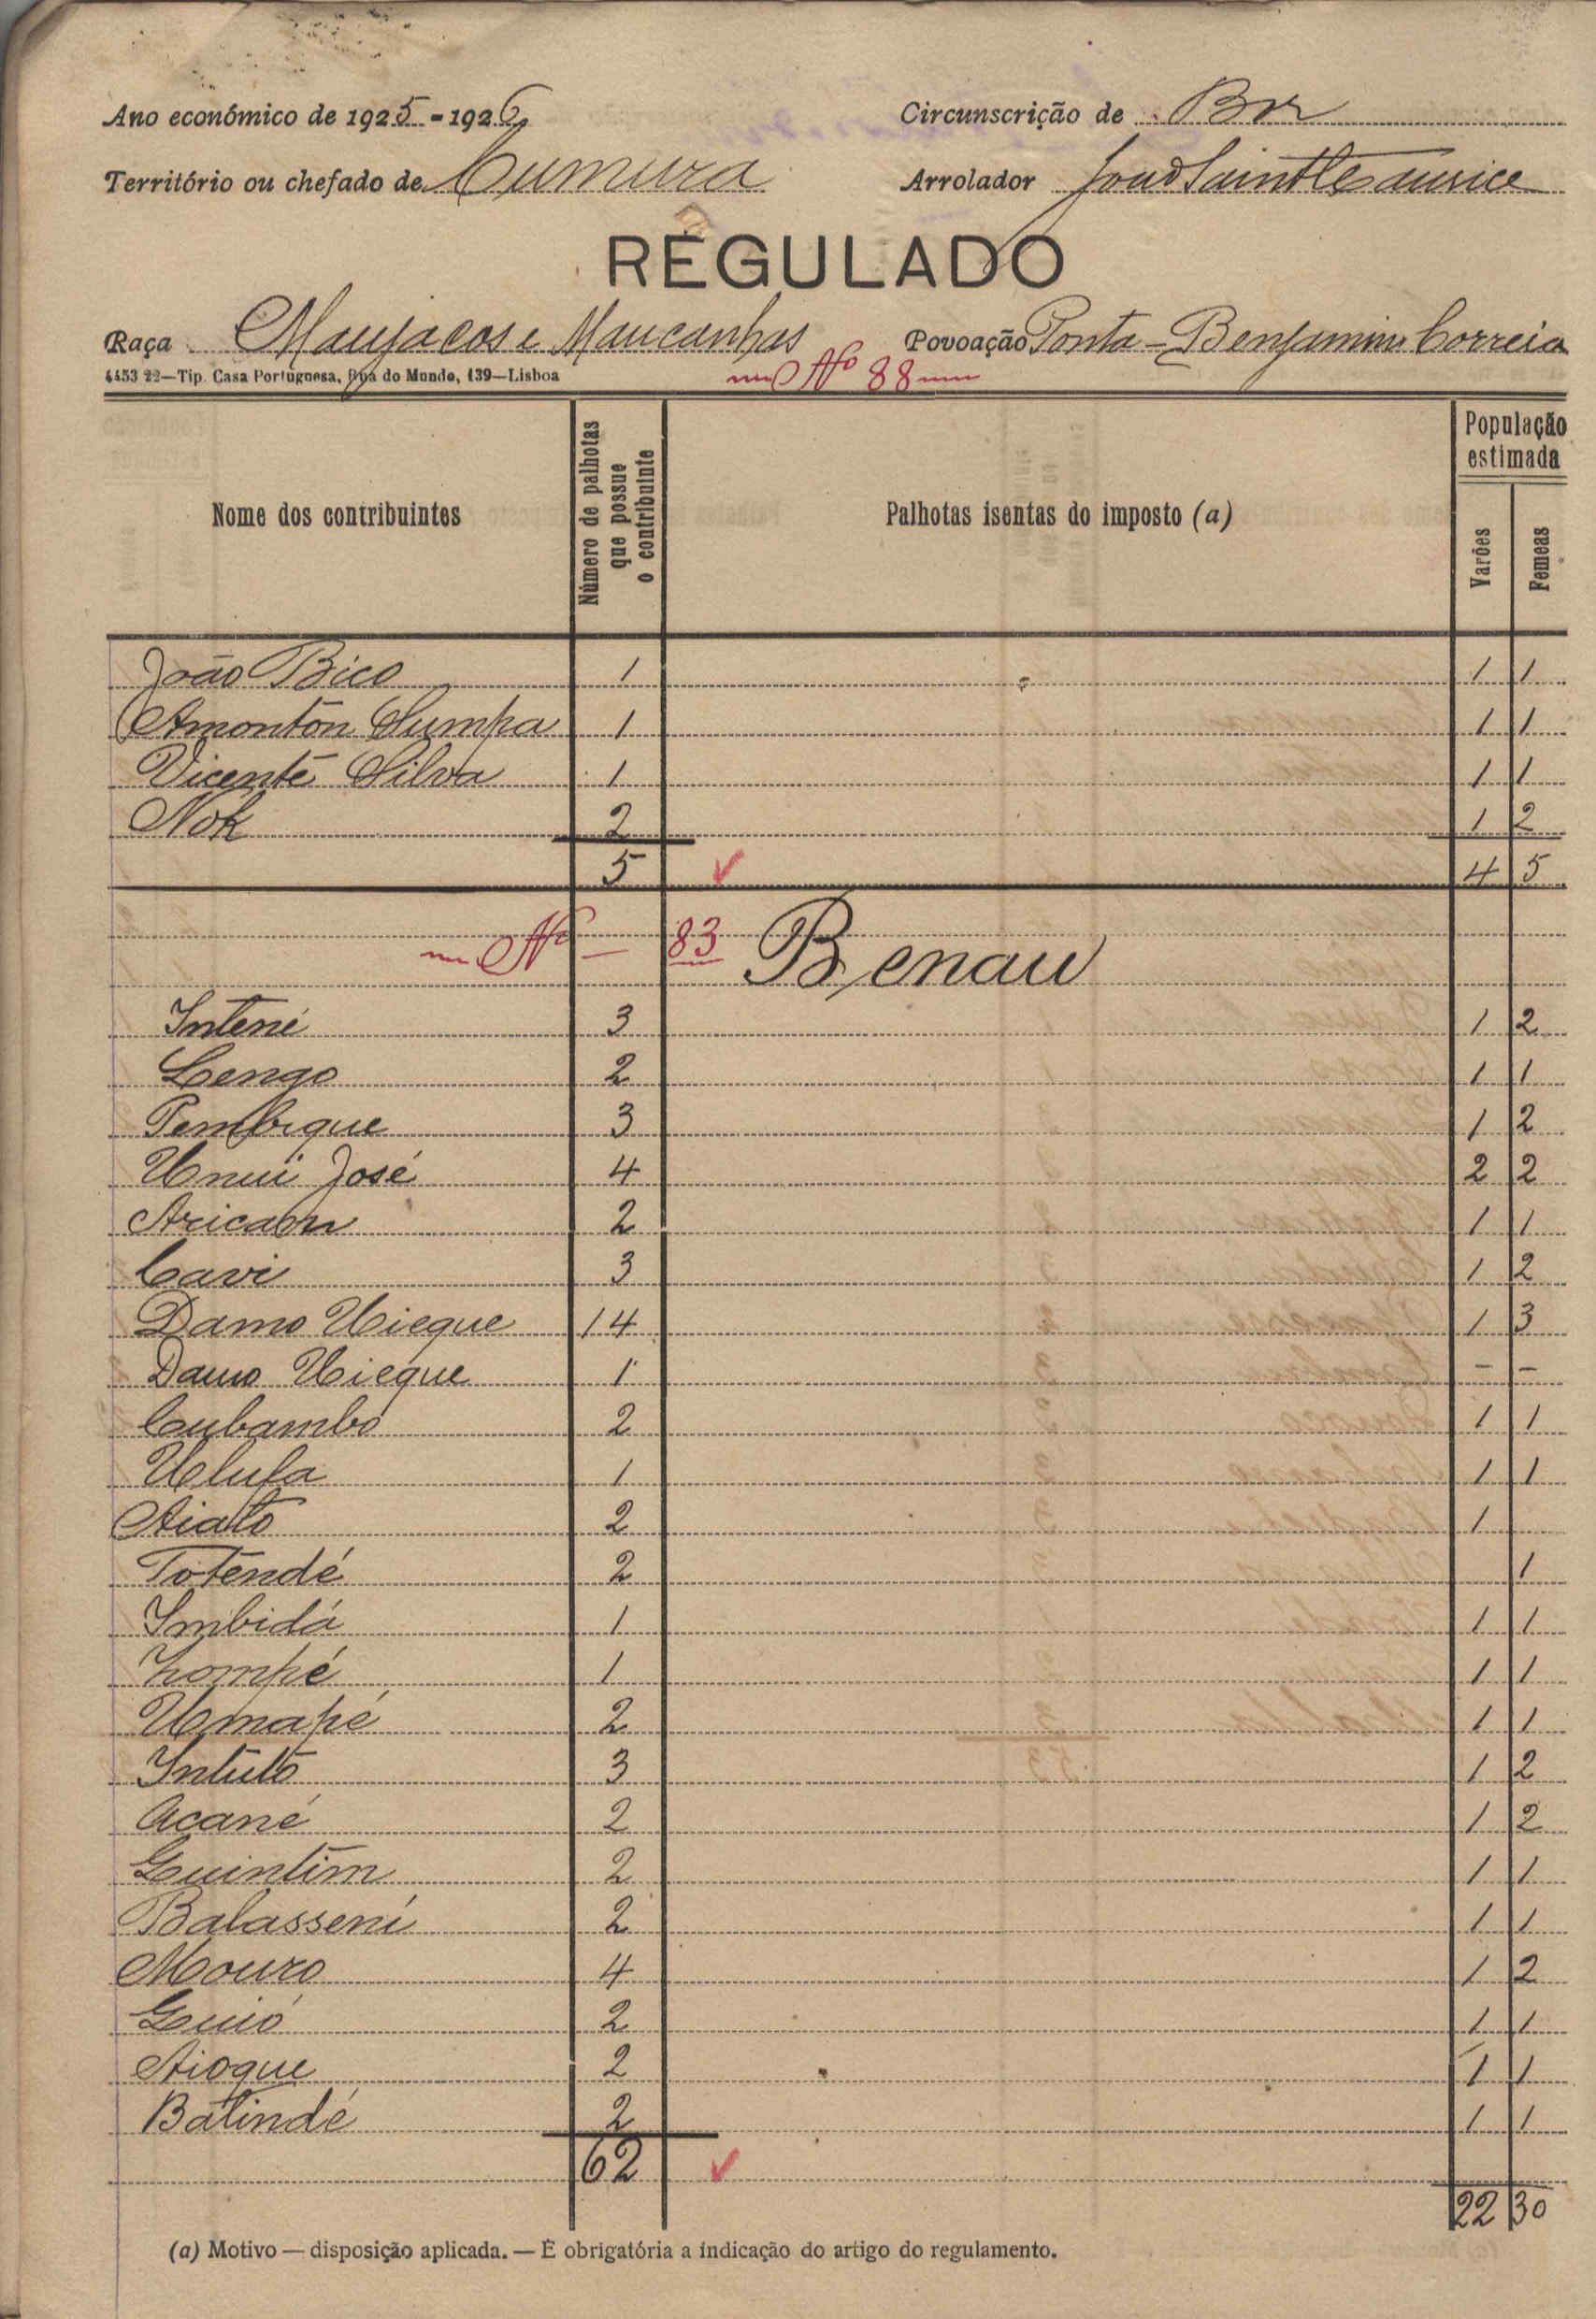 Ano económico de 1925-1926
Circunscrição de Bor
Território ou chefado de Cumura
Arrolador
REGULADO
Raça Manjacos e Mancanhas
Povoação Ponta-Benjamim Correia
4453 22—Tip. Casa Portuguesa, Rua do Mundo, 139—Lisboa
Nº 88
Nome dos contribuintes
Número de palhotas que possue o contribuinte
Palhotas isentas do imposto (a)
População estimada
Varões
Femeas
João Bico 1 1 1
Amontón Sumpa 1 1 1
Vicente Silva 1 1 1
Nok 2 1 2
5 4 5
Nº — 83 Benau
Intené 3 1 2
Lengo 2 1 1
Pembique 3 1 2
Unui José 4 2 2
Aricam 2 1 1
Cavi 3 1 2
Damo Uieque 14 1 3
Damo Uieque 1 - -
Cubambo 2 1 1
Ulufa 1 1 1
Aiato 2 1
Totendé 2 1
Imbidá 1 1 1
Lompé 1 1 1
Umapé 2 1 1
Intuto 3 1 2
Acané 2 1 2
Guintim 2 1 1
Balassení 2 1 1
Mouro 4 1 2
Guió 2 1 1
Aioque 2 1 1
Batindé 2 1 1
62
22 30
(a) Motivo — disposição aplicada. — É obrigatória a indicação do artigo do regulamento.